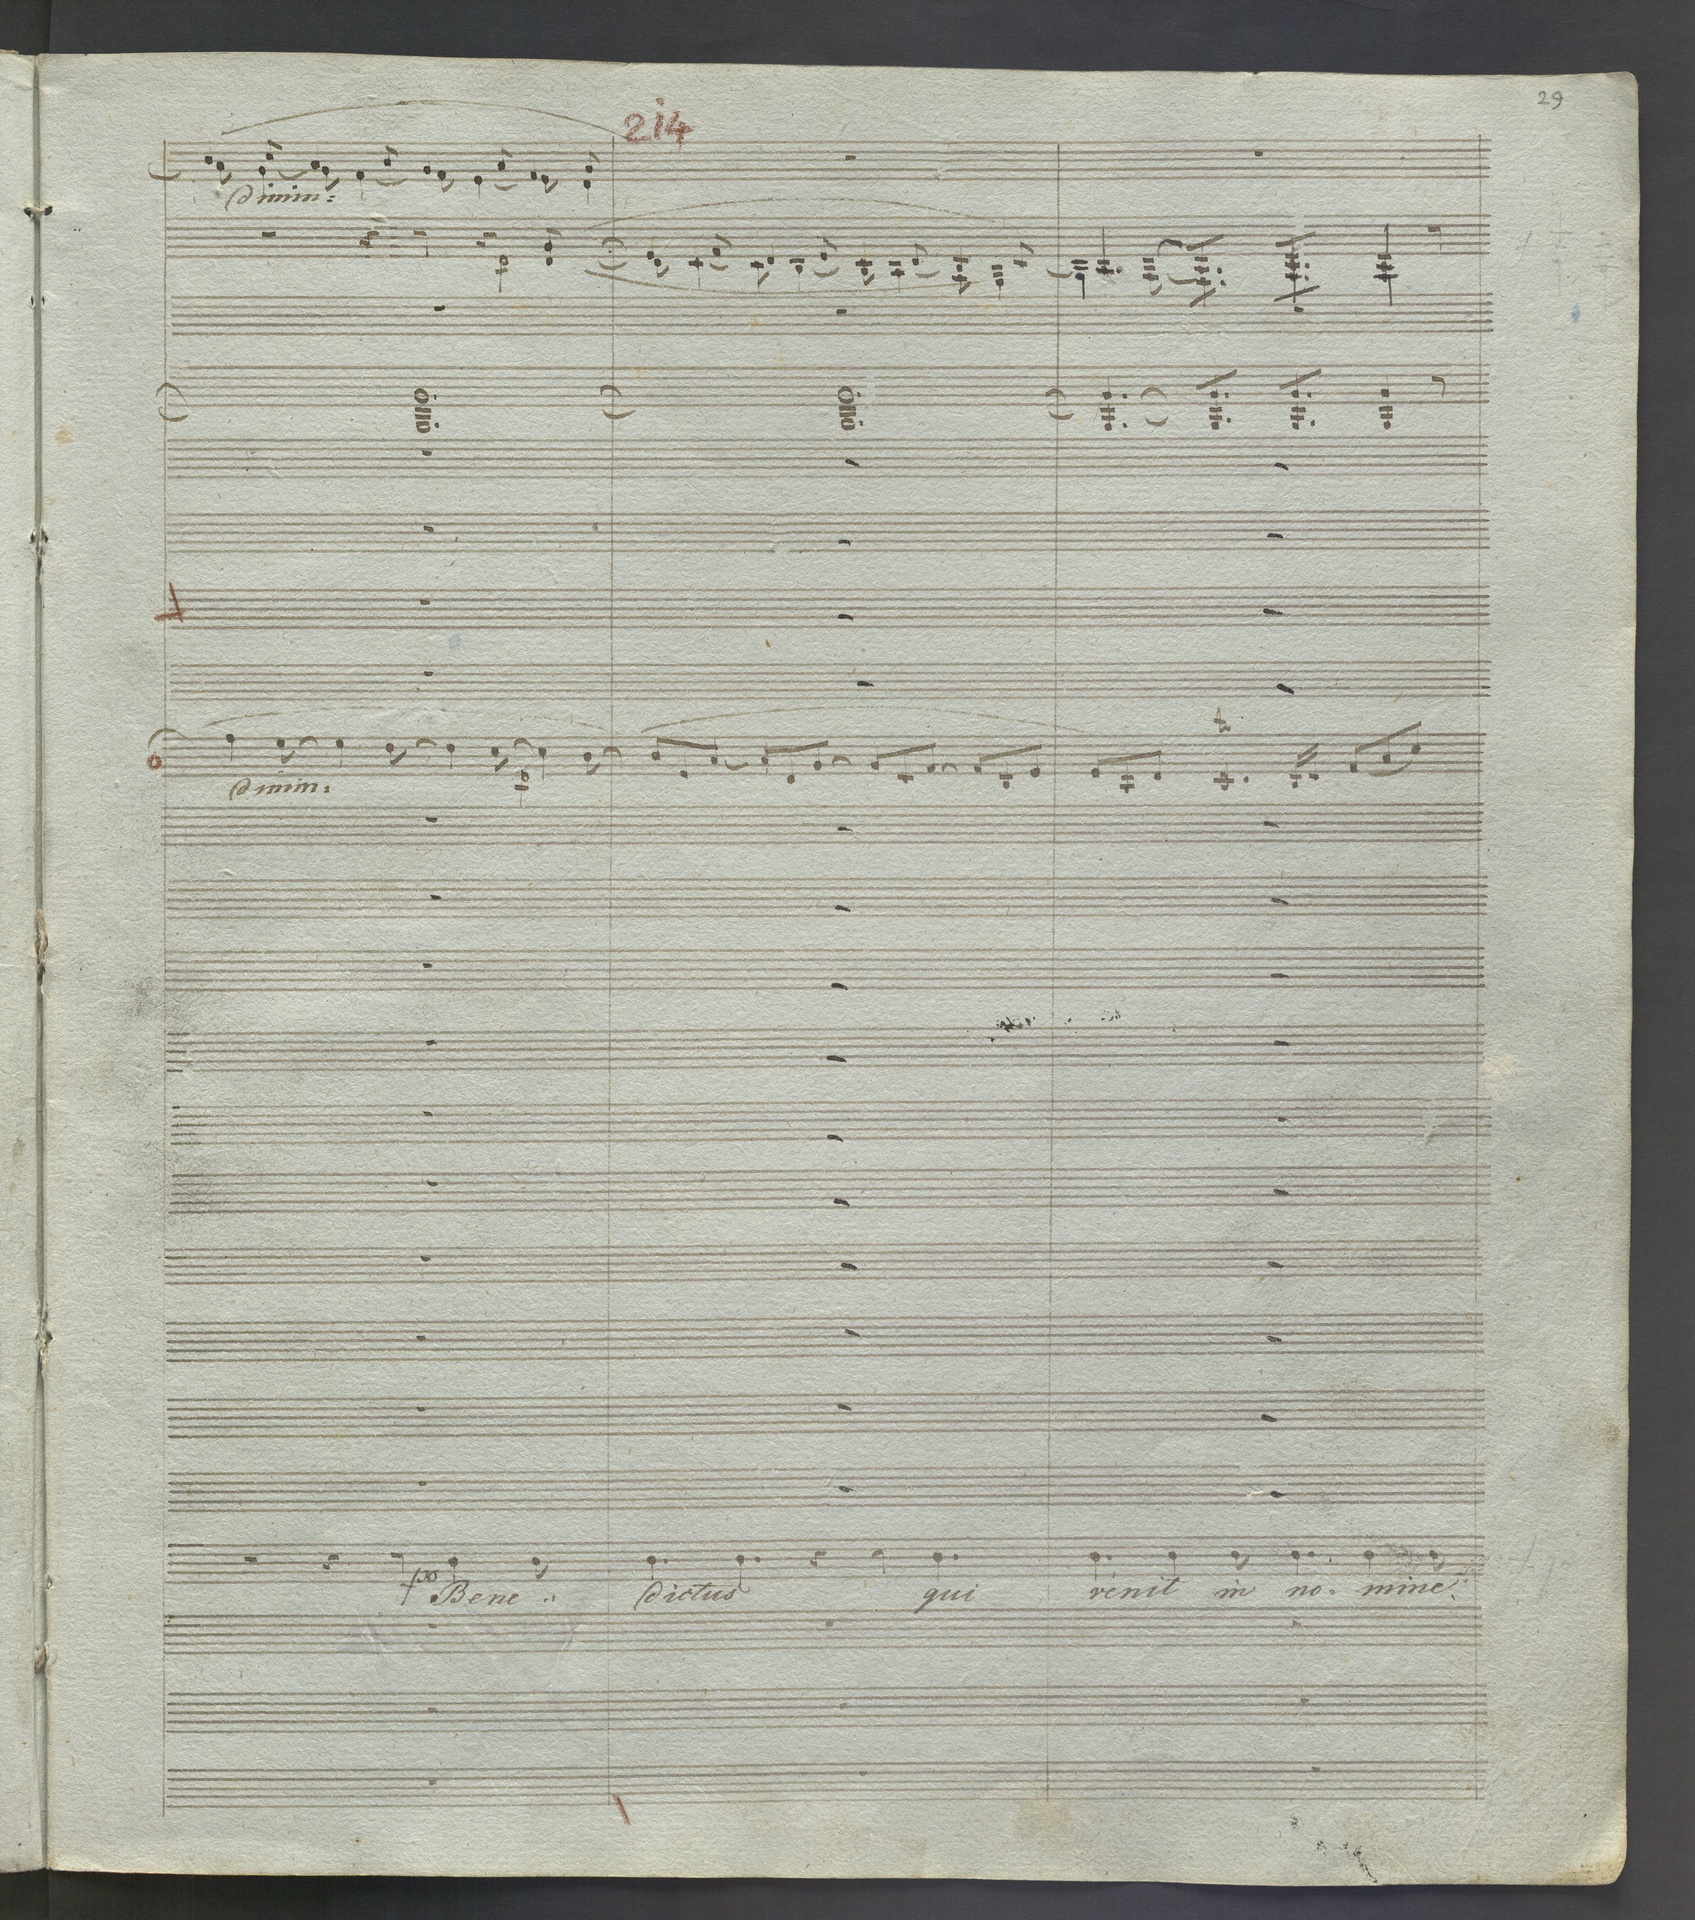 29
214
Dimin:
Dimin:
pp Bene .. dictus qui venit in no. mine.